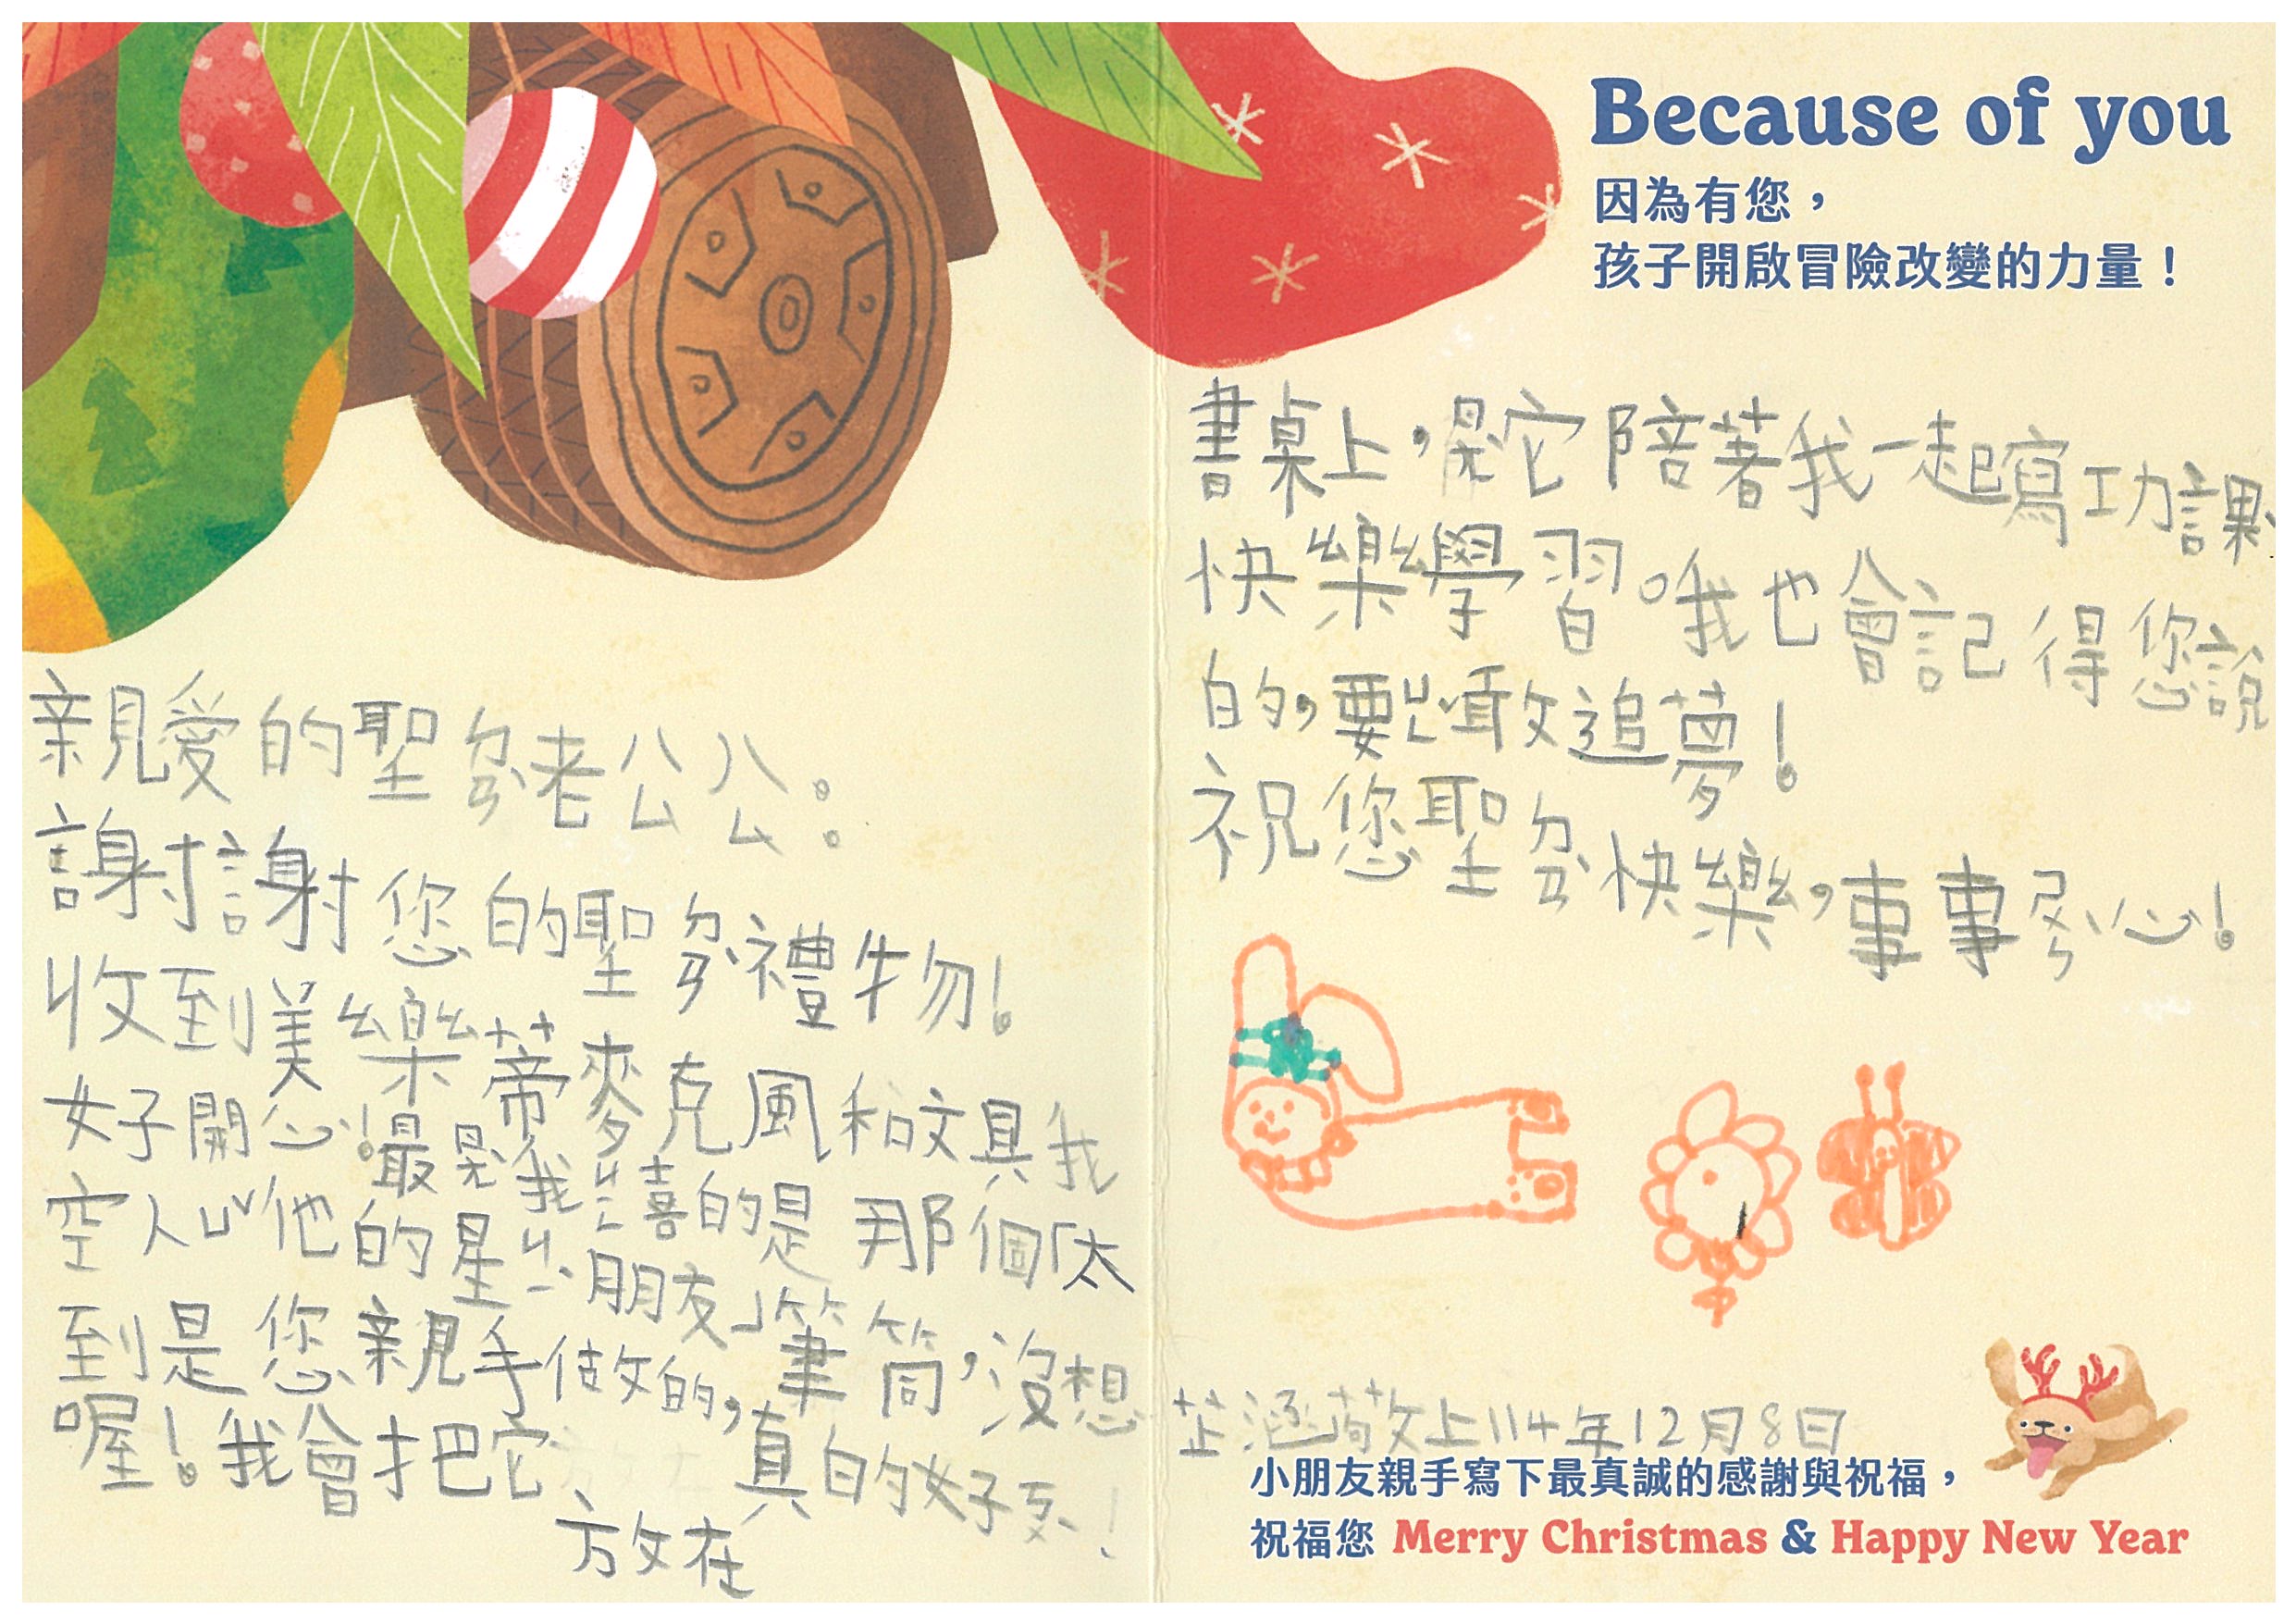 Because of you
因為有您，
孩子開啟冒險改變的力量！
親愛的聖ㄉㄢˋ老公公：
謝謝您的聖ㄉㄢˋ禮物！
收到美樂蒂麥克風和文具我
好開心！最 我 喜的是那個「太
空人ㄩˇ他的星 朋友」筆筒，沒想
到是您親手做的，真的好 ！
喔！我會把它放在
書桌上， 它陪著我一起寫功課、
快樂學習。我也會記得您說
的，要 敢追夢！
祝您聖ㄉㄢˋ快樂，事事 心！
芷涵敬上114年12月8日
小朋友親手寫下最真誠的感謝與祝福，
祝福您 Merry Christmas & Happy New Year